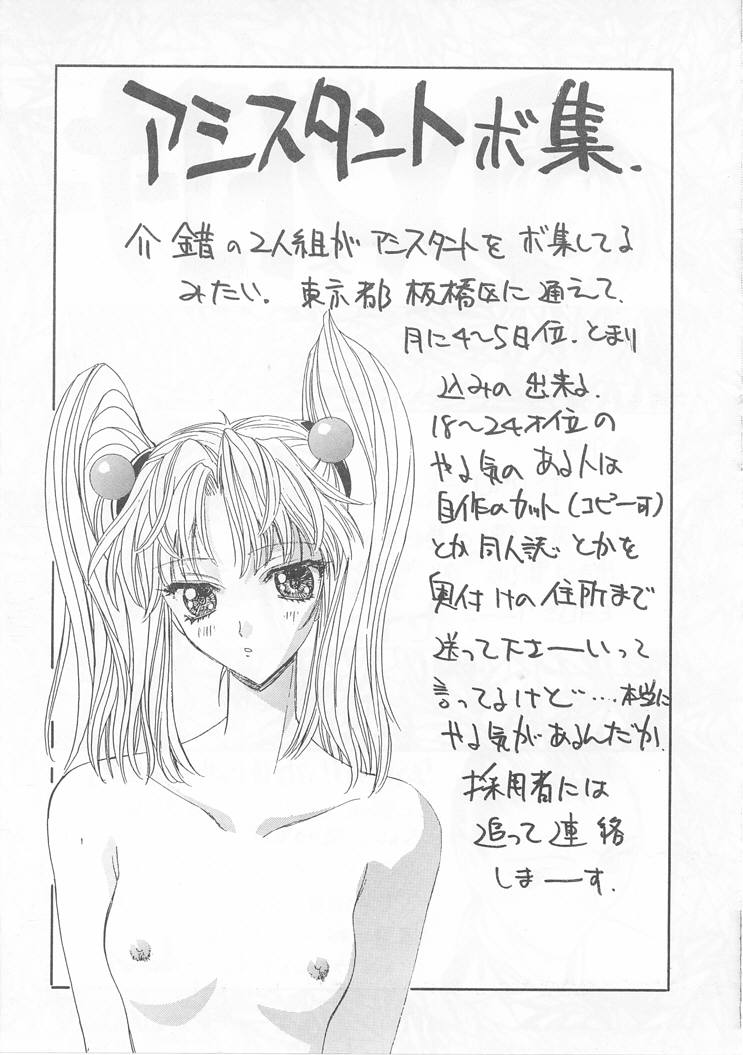 アシスタントボ集.
介錯の2人組がアシスタントをボ集してる
みたい。東京都板橋区に通えて、
月に4〜5日位、とまり
込みの出来る、
18〜24才位の
やる気のある人は
自作のカット(コピー可)
とか同人誌とかを
奥付けの住所まで
送って下さーーいって
言ってるけど‥‥本当に
やる気があるんだか、
採用者には
追って連絡
しまーーす.